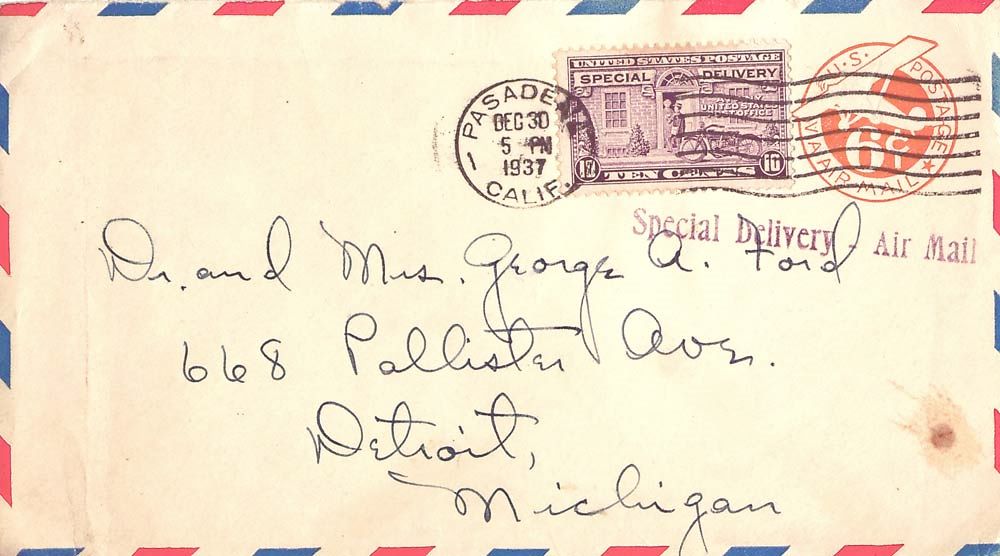 UNITED STATES POSTAGE
SPECIAL DELIVERY
AT ANY
UNITED STATES
POST OFFICE
10 TEN CENTS 10
U.S. POSTAGE
6¢
VIA AIR MAIL
PASADENA
DEC 30
5 PM
1937
CALIF.
Special Delivery - Air Mail
Dr. and Mrs. George A. Ford
668 Pallister Ave.
Detroit,
Michigan